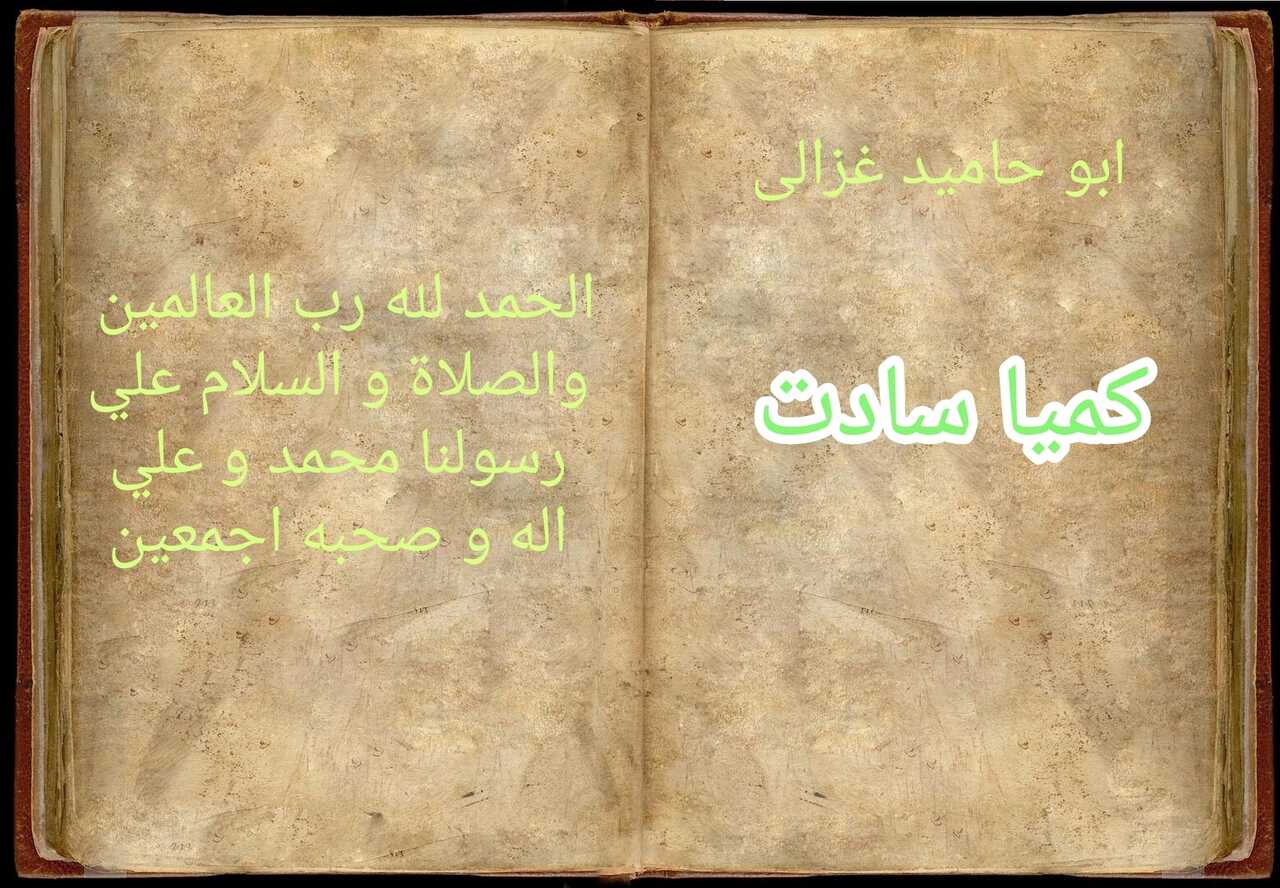 ابو حاميد غزالى
كميا سادت
الحمد لله رب العالمين
والصلاة و السلام علي
رسولنا محمد و علي
اله و صحبه اجمعين